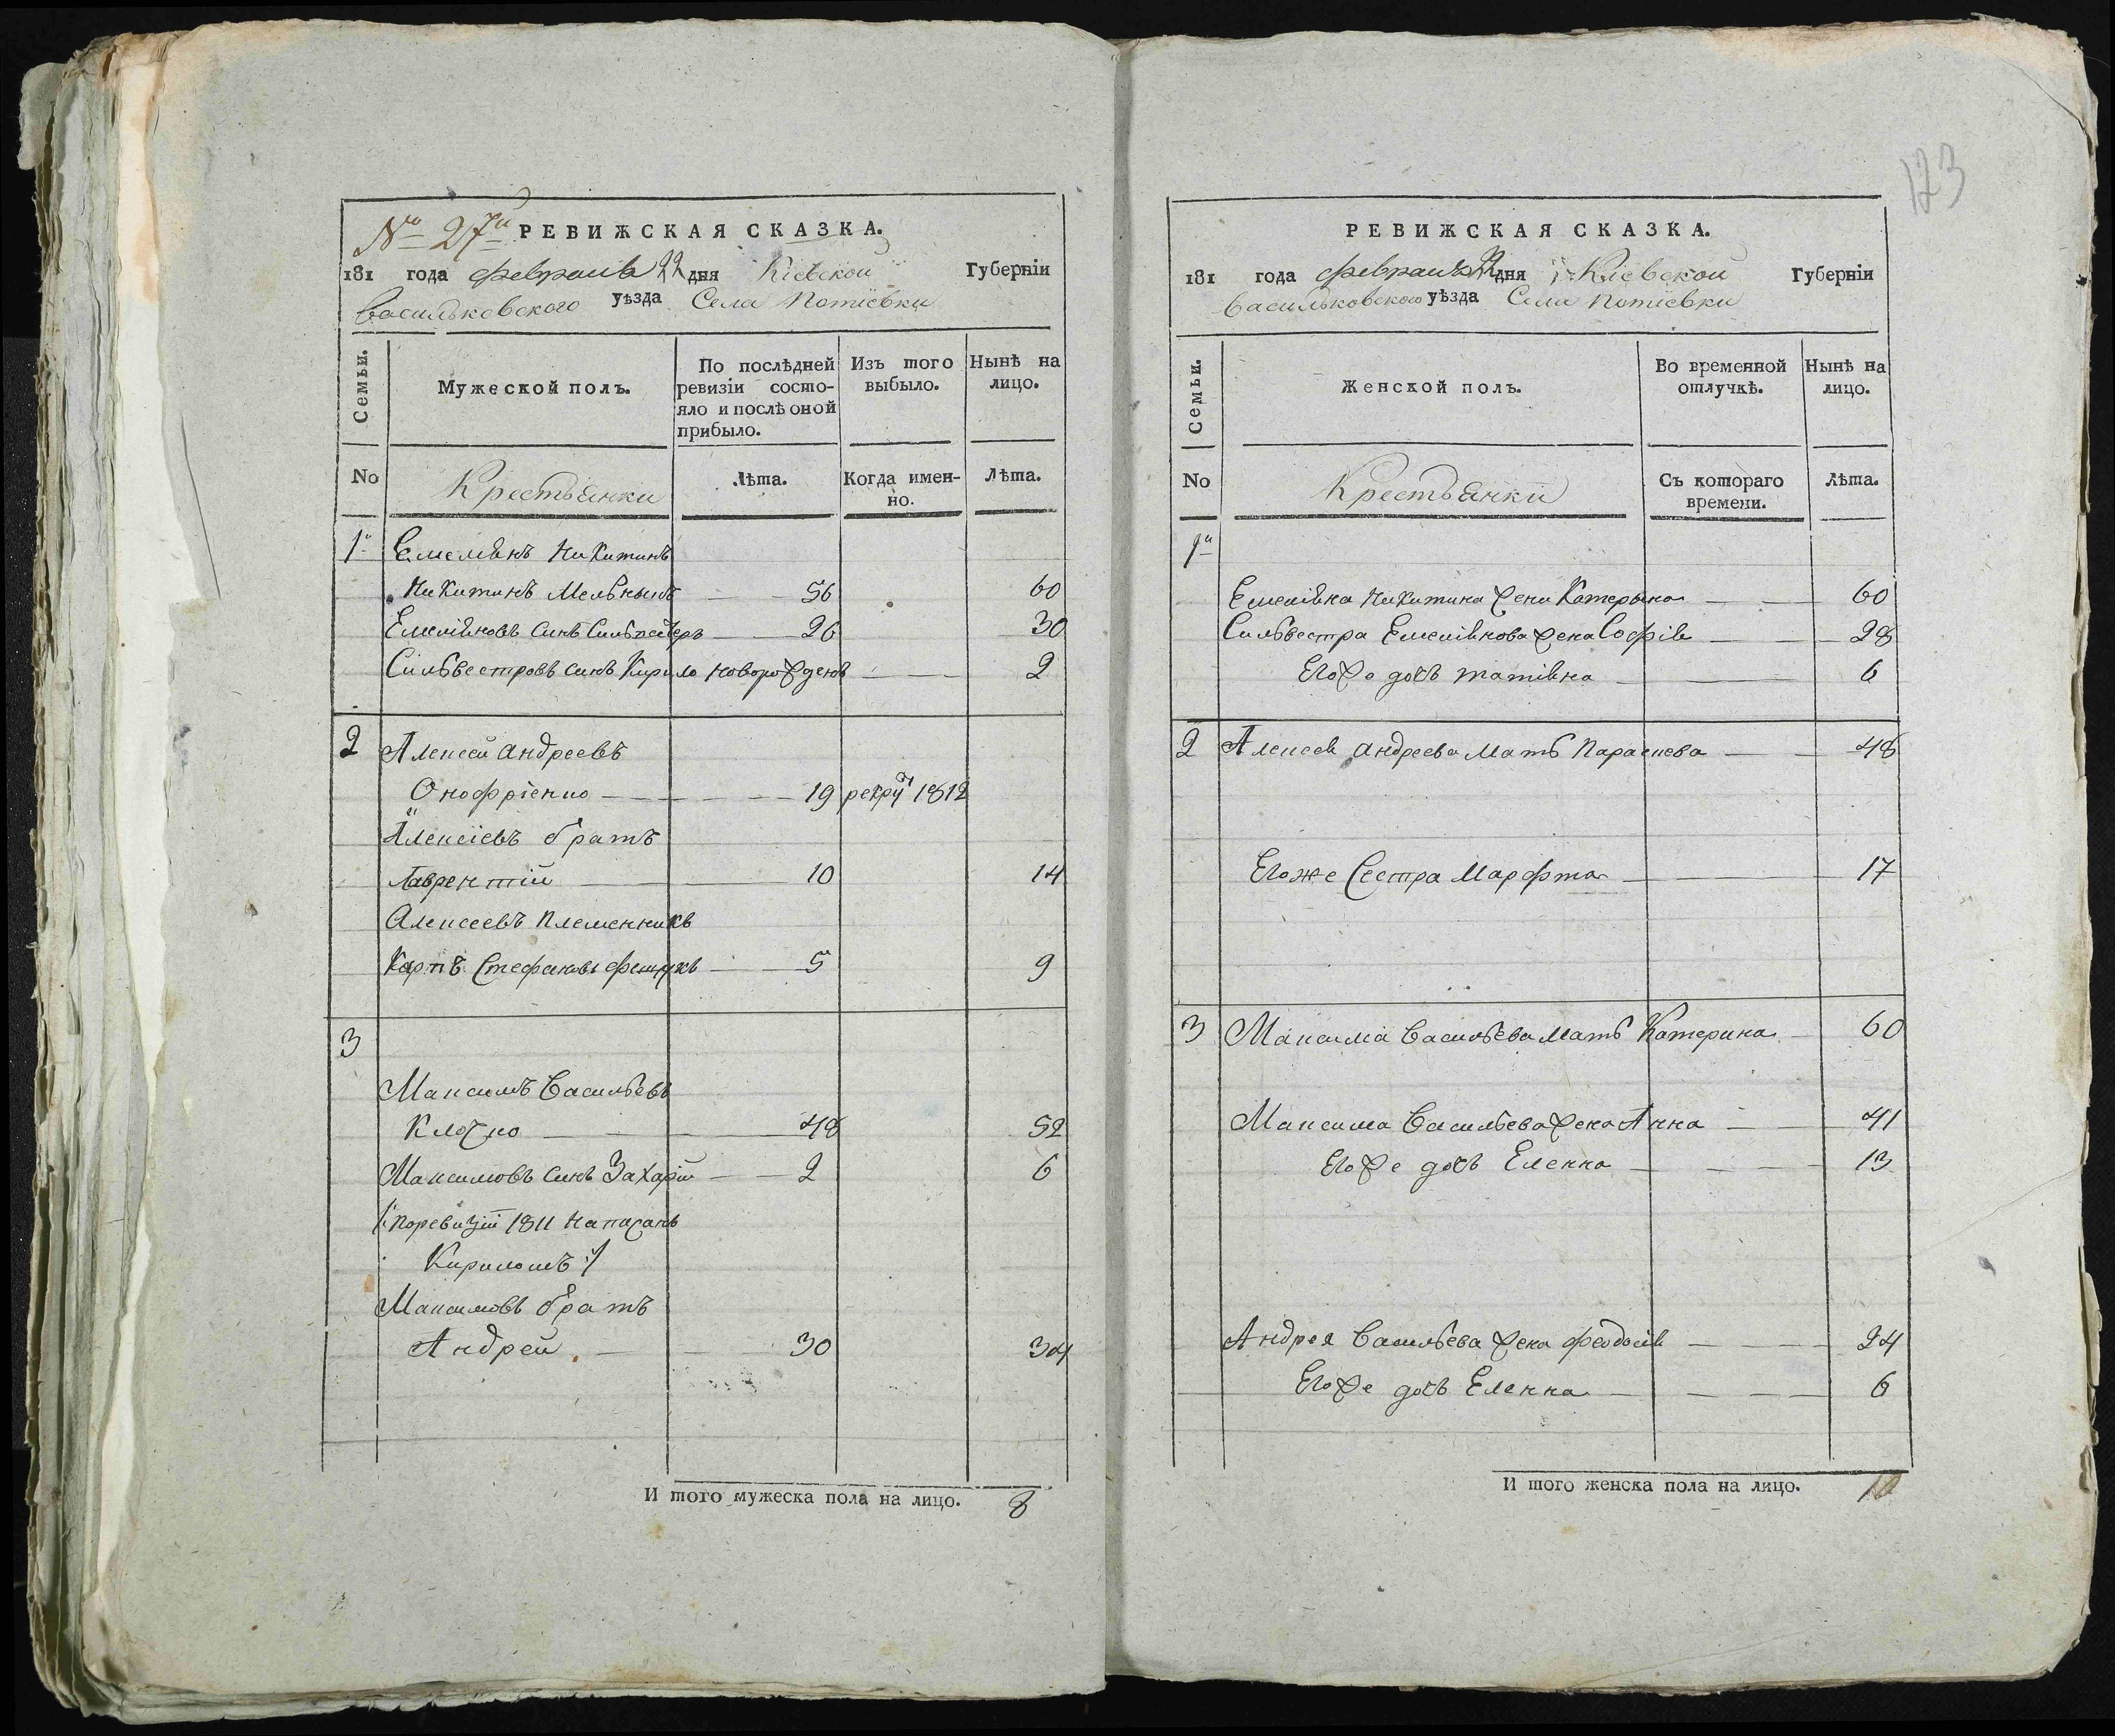 № 27й РЕВИЖСКАЯ СКАЗКА.
181 года февраля 22 дня Кіевской Губерніи
Васильковского уѣзда Села Потіевки
Семьи.
Мужеской полъ.
По послѣдней ревизіи состо-
яло и послѣ оной
прибыло.
Изъ того
выбыло.
Нынѣ на
лицо.
No
Крестьянки
Лѣта.
Когда имен-
но.
Лѣта.
1й Емелянъ Никитинъ
Никитинъ Мельныкъ 56 60
Емеліяновъ синъ 26 30
Сильвестровъ синъ Кирило новорожденъ 2
2 Алексей андреевъ
Онофріенко 19 рекрут 1812
Алексіевъ братъ
Лаврентій 10 14
Алексеевъ племенникъ
Карпъ Стефановъ 5 9
3
Максимъ Васильевъ
Клочко 48 52
Максимовъ синъ Захарій 2 6
/:поревизіи 1811 написанъ
Кириломъ:/
Максимовъ братъ
Андрей 30 34
И того мужеска пола на лицо. 8
123
РЕВИЖСКАЯ СКАЗКА.
181 года февраля 22 дня Кіевской Губерніи
Васильковского уѣзда Села Потіевки
Семьи.
Женской полъ.
Во временной
отлучкѣ.
Нынѣ на
лицо.
No
Крестьянки
Съ котораго
времени.
Лѣта.
1й
Емеліяна Никитина жена Катерына 60
Сильвестра Емеліянова жена Софія 28
Егоже дочь татіяна 6
2 Алексея андреева мать Параскева 48
Егоже Сестра Марфта 17
3 Максима Васильева мать Катерина 60
Максима Васильева жена Анна 41
Егоже дочь Еленна 13
Андрея Васильева жена феодосія 24
Егоже дочь Еленна 6
И того женска пола на лицо. 10